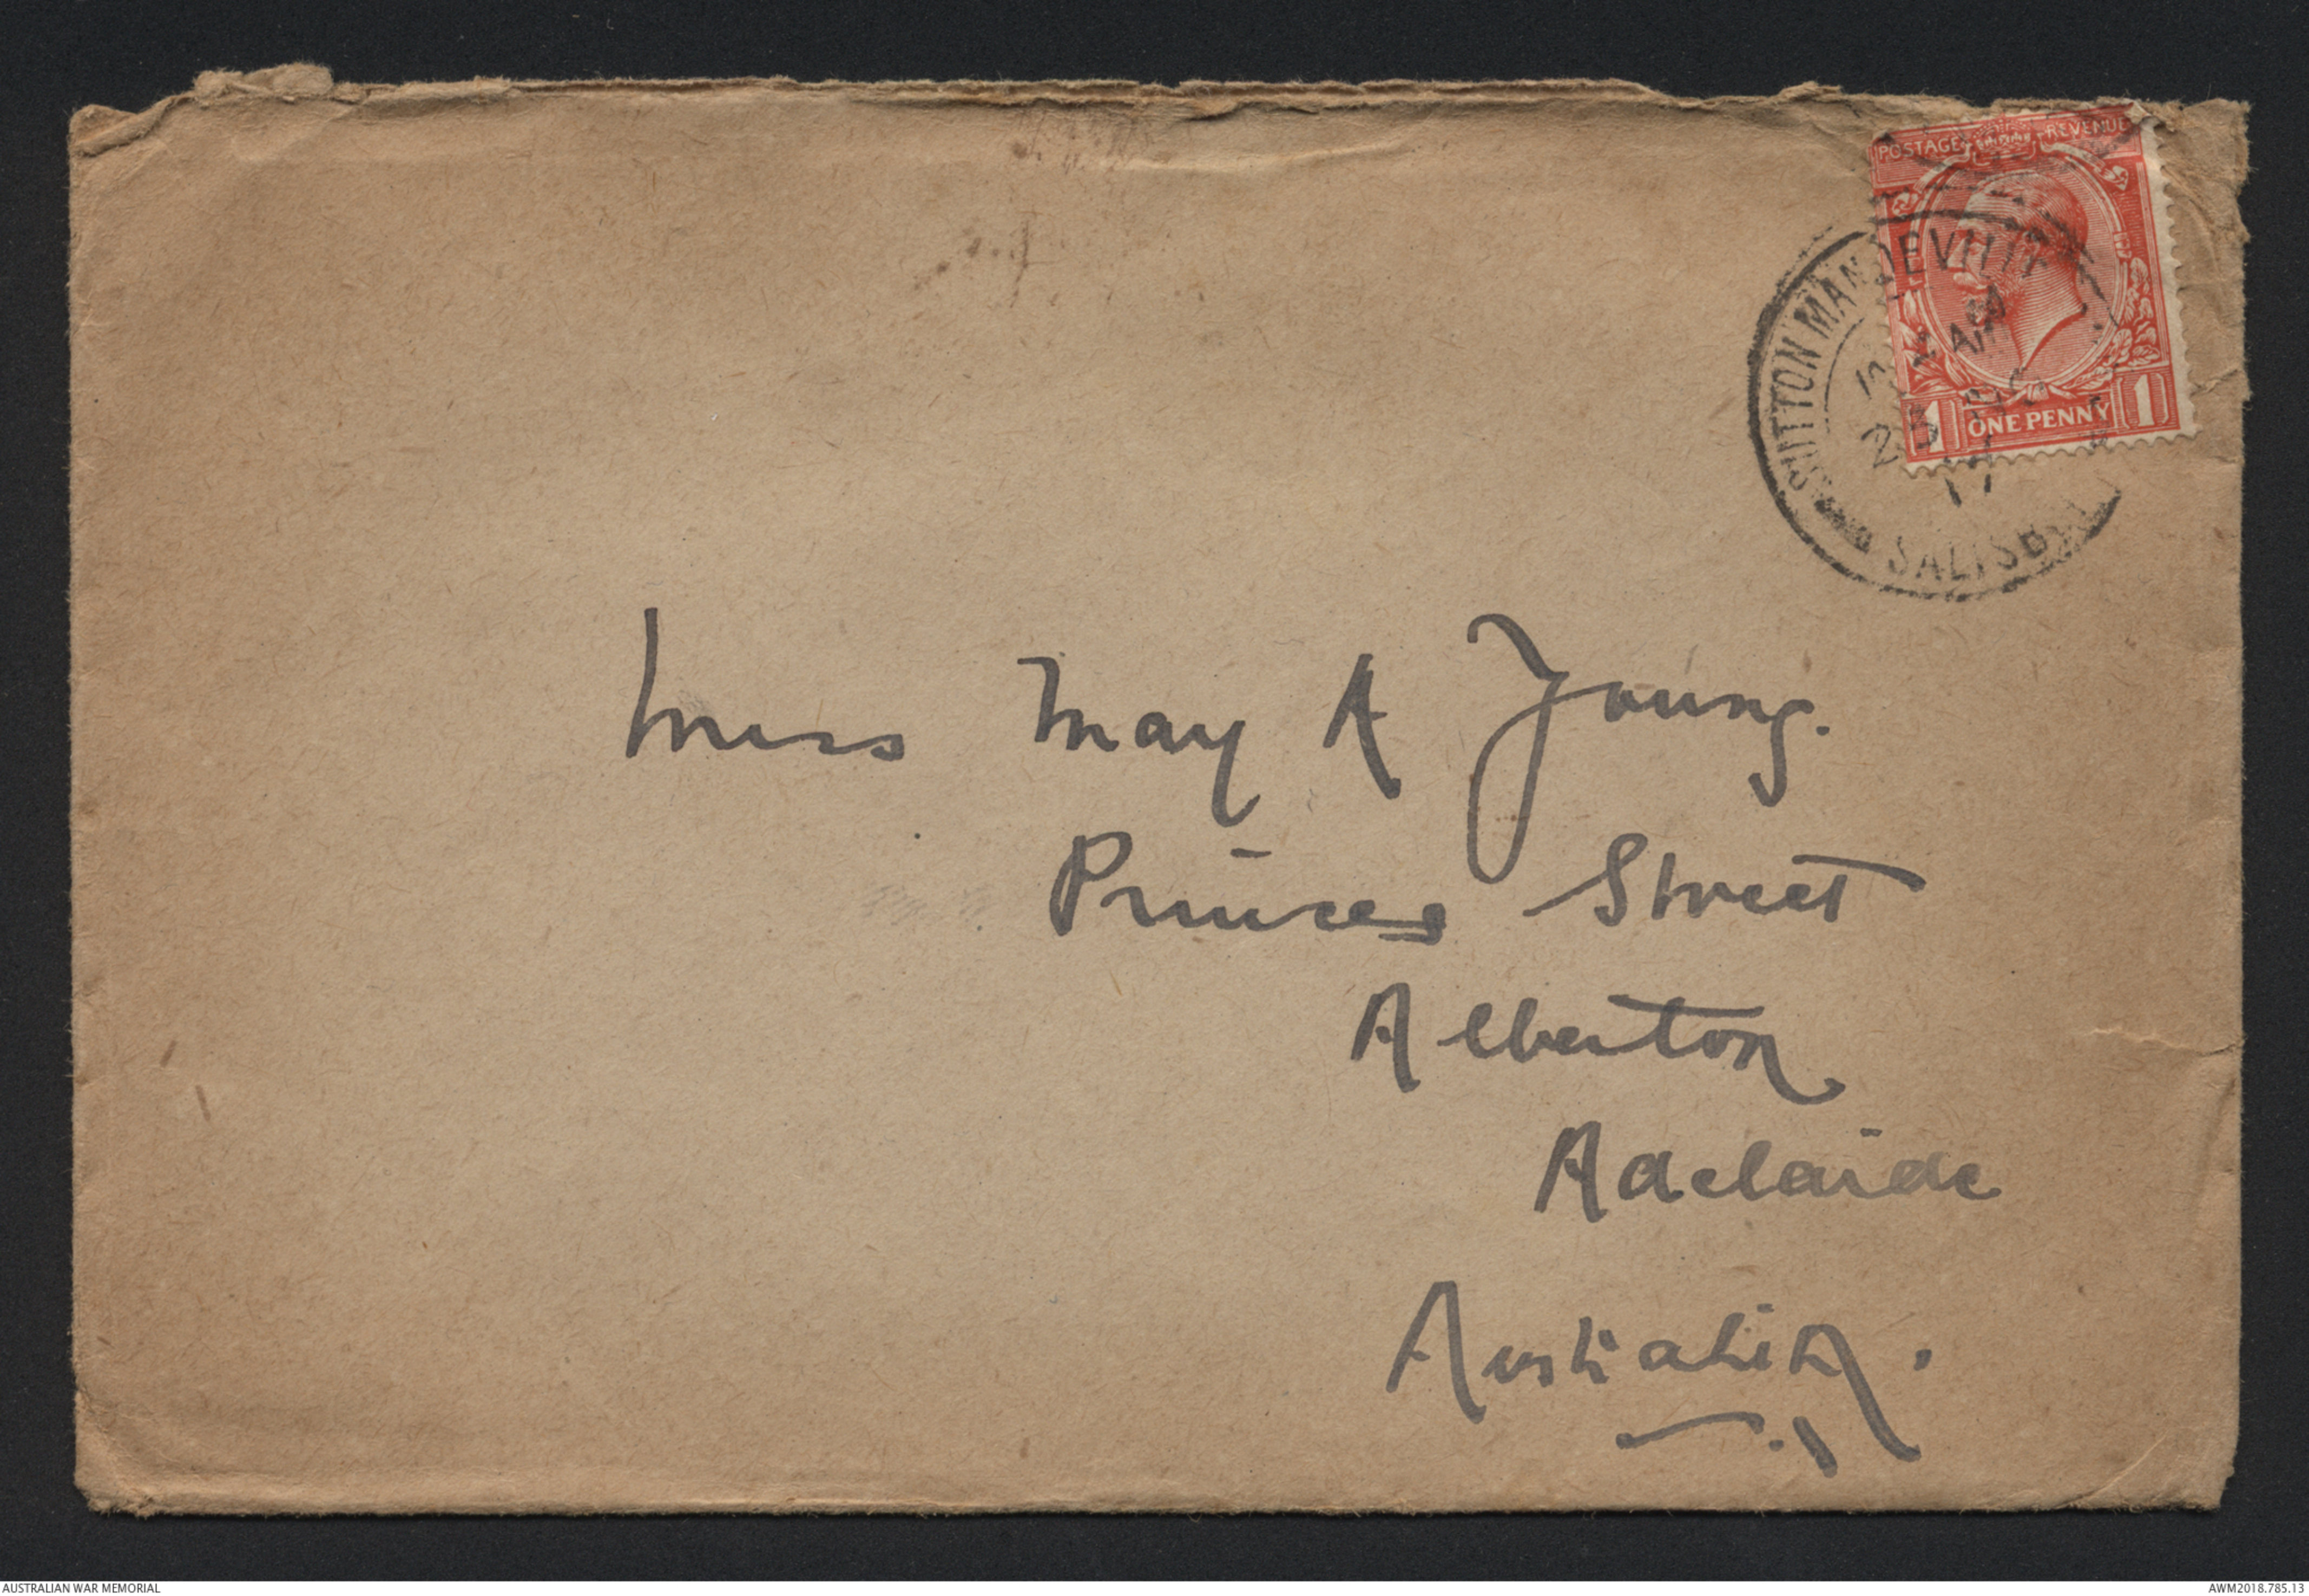 POSTAGE REVENUE
SUTTON MANDEVILLE
AM
17
SALISBY
1 ONE PENNY 1
Miss May A Young.
Princes Street
Alberton
Adelaide
Australia.
AUSTRALIAN WAR MEMORIAL
AWM2018.785.13